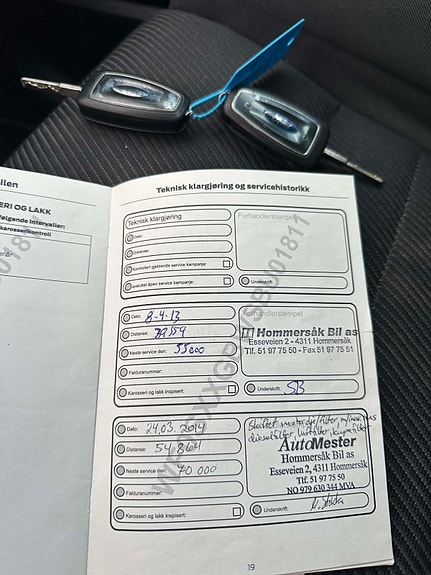 llen
ERI OG LAKK
følgende intervaller:
karosserikontroll
Teknisk klargjøring og servicehistorikk
Teknisk klargjøring
Forhandlerstempel
Dato:
Distanse:
Kontrollert gjeldende service kampanje:
Avsluttet åpen service kampanje:
Underskrift:
Dato: 8-4.13
Forhandlerstempel
Distanse: 39559
Hommersåk Bil as
Esseveien 2 - 4311 Hommersåk
Tlf. 51 97 75 50 - Fax 51 97 75 51
Neste service den: 55000
Fakturanummer:
Karosseri og lakk inspisert:
Underskrift: SB
Dato: 24.03.2014
Skiftet motorolje/filter,
dieselfilter, luftfilter, kupefilter
Distanse: 54864
AutoMester
Hommersåk Bil as
Neste service den: 70 000
Esseveien 2, 4311 Hommersåk
Tlf. 51 97 75 50
Fakturanummer:
NO 979 630 344 MVA
Karosseri og lakk inspisert:
Underskrift:
19